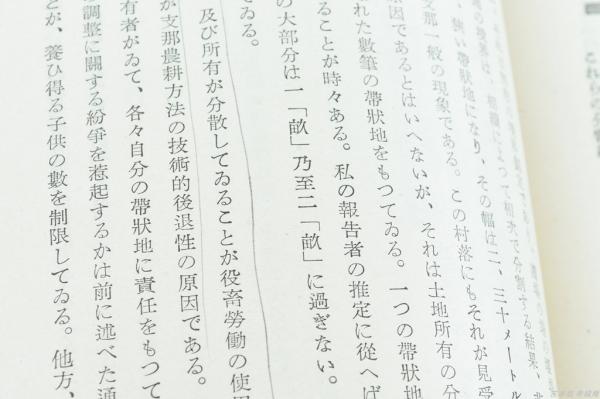 の境界は、相續によつて相次で分割する結果、非
、狹い帶狀地になり、その幅は二、三十メートル
支那一般の現象である。この村落にもそれが見受
原因であるとはいへないが、それは土地所有の分
れた數筆の帶狀地をもつてゐる。一つの帶狀地
ることが時々ある。私の報告者の推定に從へば
の大部分は一「畝」乃至二「畝」に過ぎない。
てゐる。
及び所有が分散してゐることが役畜勞働の使用
が支那農耕方法の技術的後退性の原因である。
有者がゐて、各々自分の帶狀地に責任をもつて
調整に關する紛爭を惹起するかは前に述べた通
とが、養ひ得る子供の數を制限してゐる。他方、